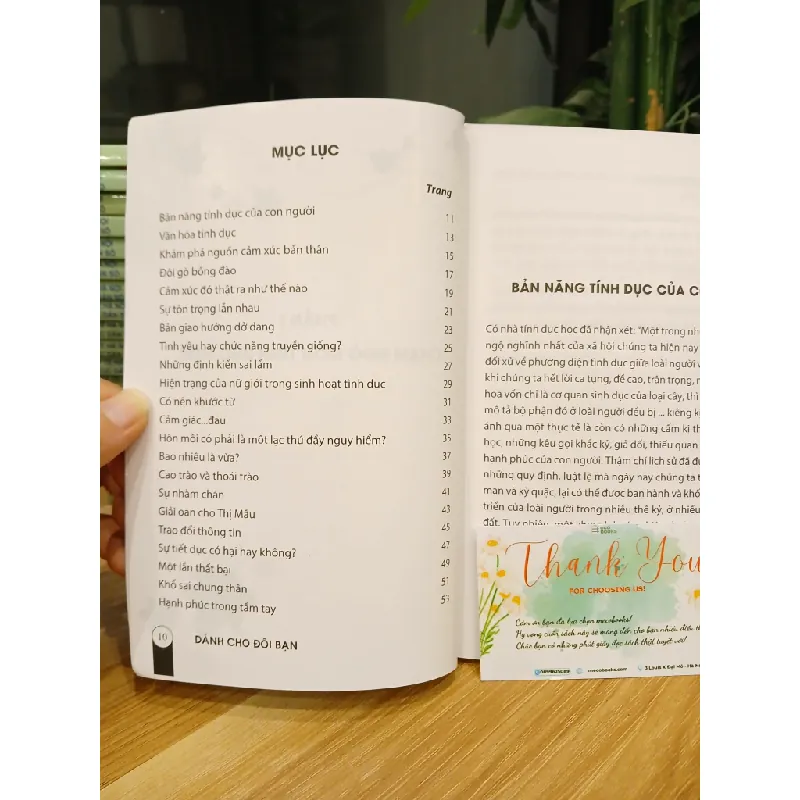 MỤC LỤC
Trang
Bản năng tính dục của con người 11
Văn hóa tính dục 13
Khám phá nguồn cảm xúc bản thân 15
Đôi gò bồng đảo 17
Cảm xúc đó thật ra như thế nào 19
Sự tôn trọng lẫn nhau 21
Bản giao hưởng dở dang 23
Tình yêu hay chức năng truyền giống? 25
Những định kiến sai lầm 27
Hiện trạng của nữ giới trong sinh hoạt tính dục 29
Có nên khước từ 31
Cảm giác...đau 33
Hôn môi có phải là một lạc thú đầy nguy hiểm? 35
Bao nhiêu là vừa? 37
Cao trào và thoái trào 39
Sự nhàm chán 41
Giải oan cho Thị Mầu 43
Trao đổi thông tin 45
Sự tiết dục có hại hay không? 47
Một lần thất bại 49
Khổ sai chung thân 51
Hạnh phúc trong tầm tay 53
10 DÀNH CHO ĐÔI BẠN
BẢN NĂNG TÍNH DỤC CỦA C
Có nhà tính dục học đã nhận xét: "Một trong nh
ngộ nghĩnh nhất của xã hội chúng ta hiện nay
đối xử về phương diện tính dục giữa loài người v
khi chúng ta hết lời ca tụng, đề cao, trân trọng,
hoa vốn chỉ là cơ quan sinh dục của loài cây, thì
mô tả bộ phận đó ở loài người đều bị ... kiêng k
ánh qua một thực tế là còn có những cấm kị th
học, những kêu gọi khắc kỷ, giả dối, thiếu quan
hạnh phúc của con người. Thậm chí lịch sử đã đ
những quy định, luật lệ mà ngày nay chúng ta t
man và kỳ quặc, lại có thể được ban hành và khố
triển của loài người trong nhiều thế kỷ, ở nhiều
đất. Tuy nhiên, một
Thank You
FOR CHOOSING US!
Cảm ơn bạn đã lựa chọn mcbooks!
Hy vọng cuốn sách này sẽ mang đến cho bạn nhiều điều
Chúc bạn có những phút giây đọc sách thật tuyệt vời!